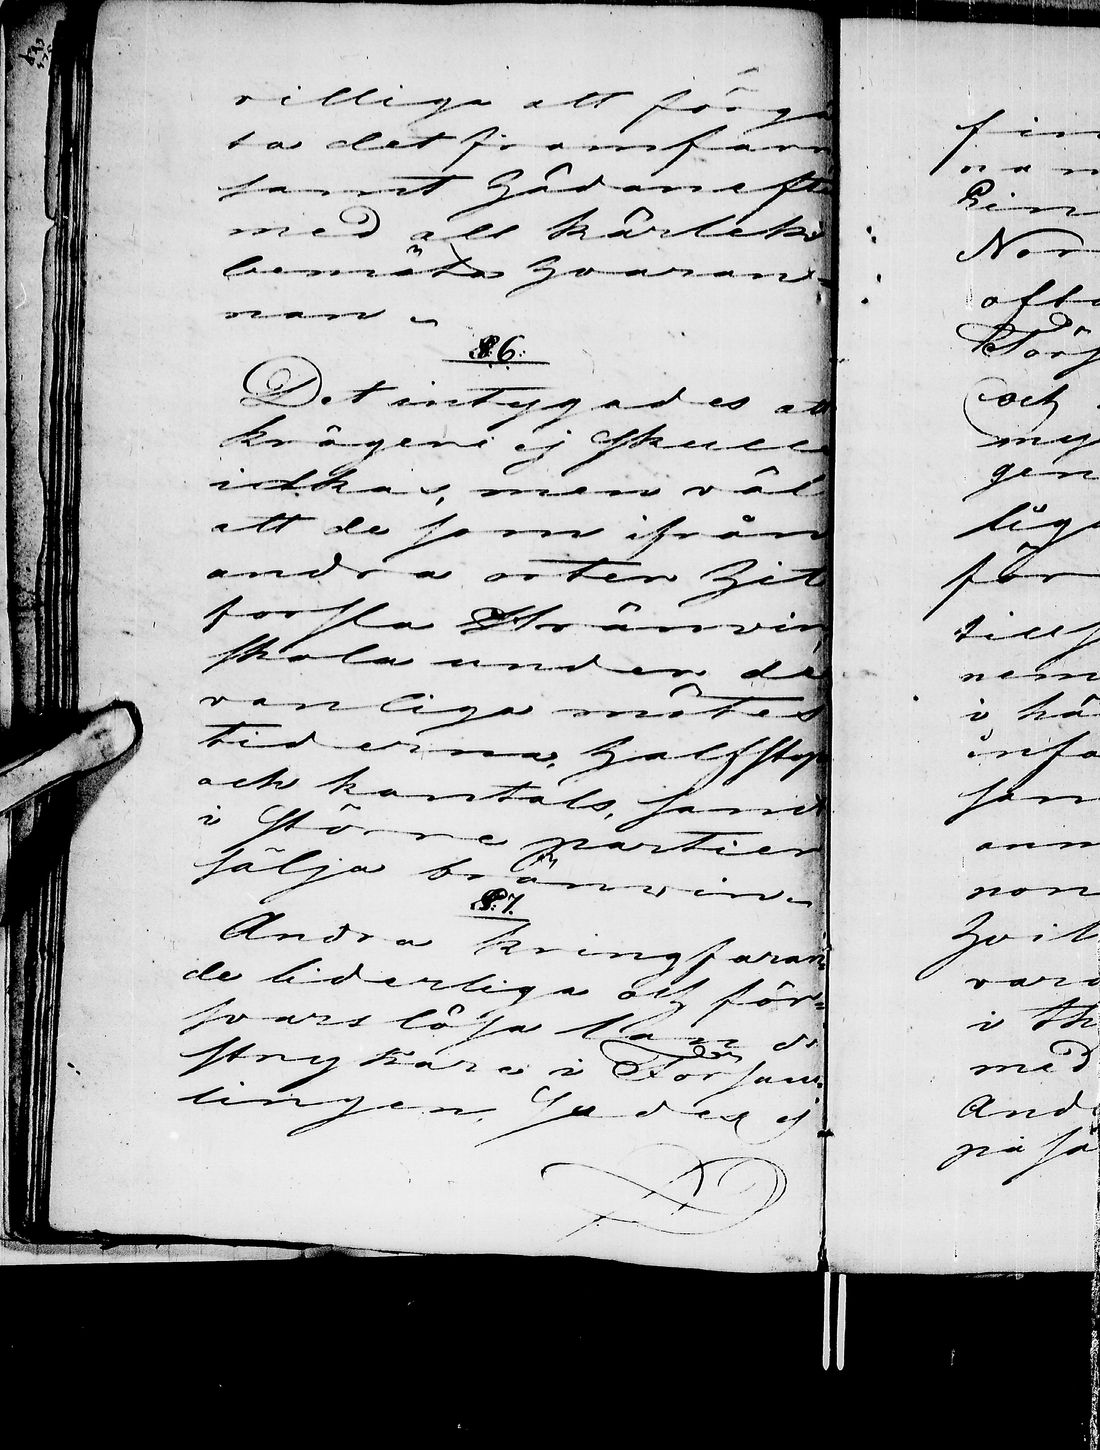 villiga att förgä
ta det framfarn
samt hädanefte
med all kärlek
bemöta hvaran-
nan
§ 6.
Det intygades att
krögeri ej skulle
idkas, men väl
att de som ifrån
andra orter hit
forsla Bränvin
skola under de
vanliga mötes
tiderna, halfstop
och kantals, samt
i större partier
sälja bränvin
§ 7.
Andra kringfaran-
de liderliga och för-
svarslösa Land
strykare i Försam-
lingen, ej
fin
nan
Ein
Nor
ofta
Förs
och
my
gen
liga
för
till
nem
i hä
infa
sam
ann
non
hvil
vara
i th
med
And
på så